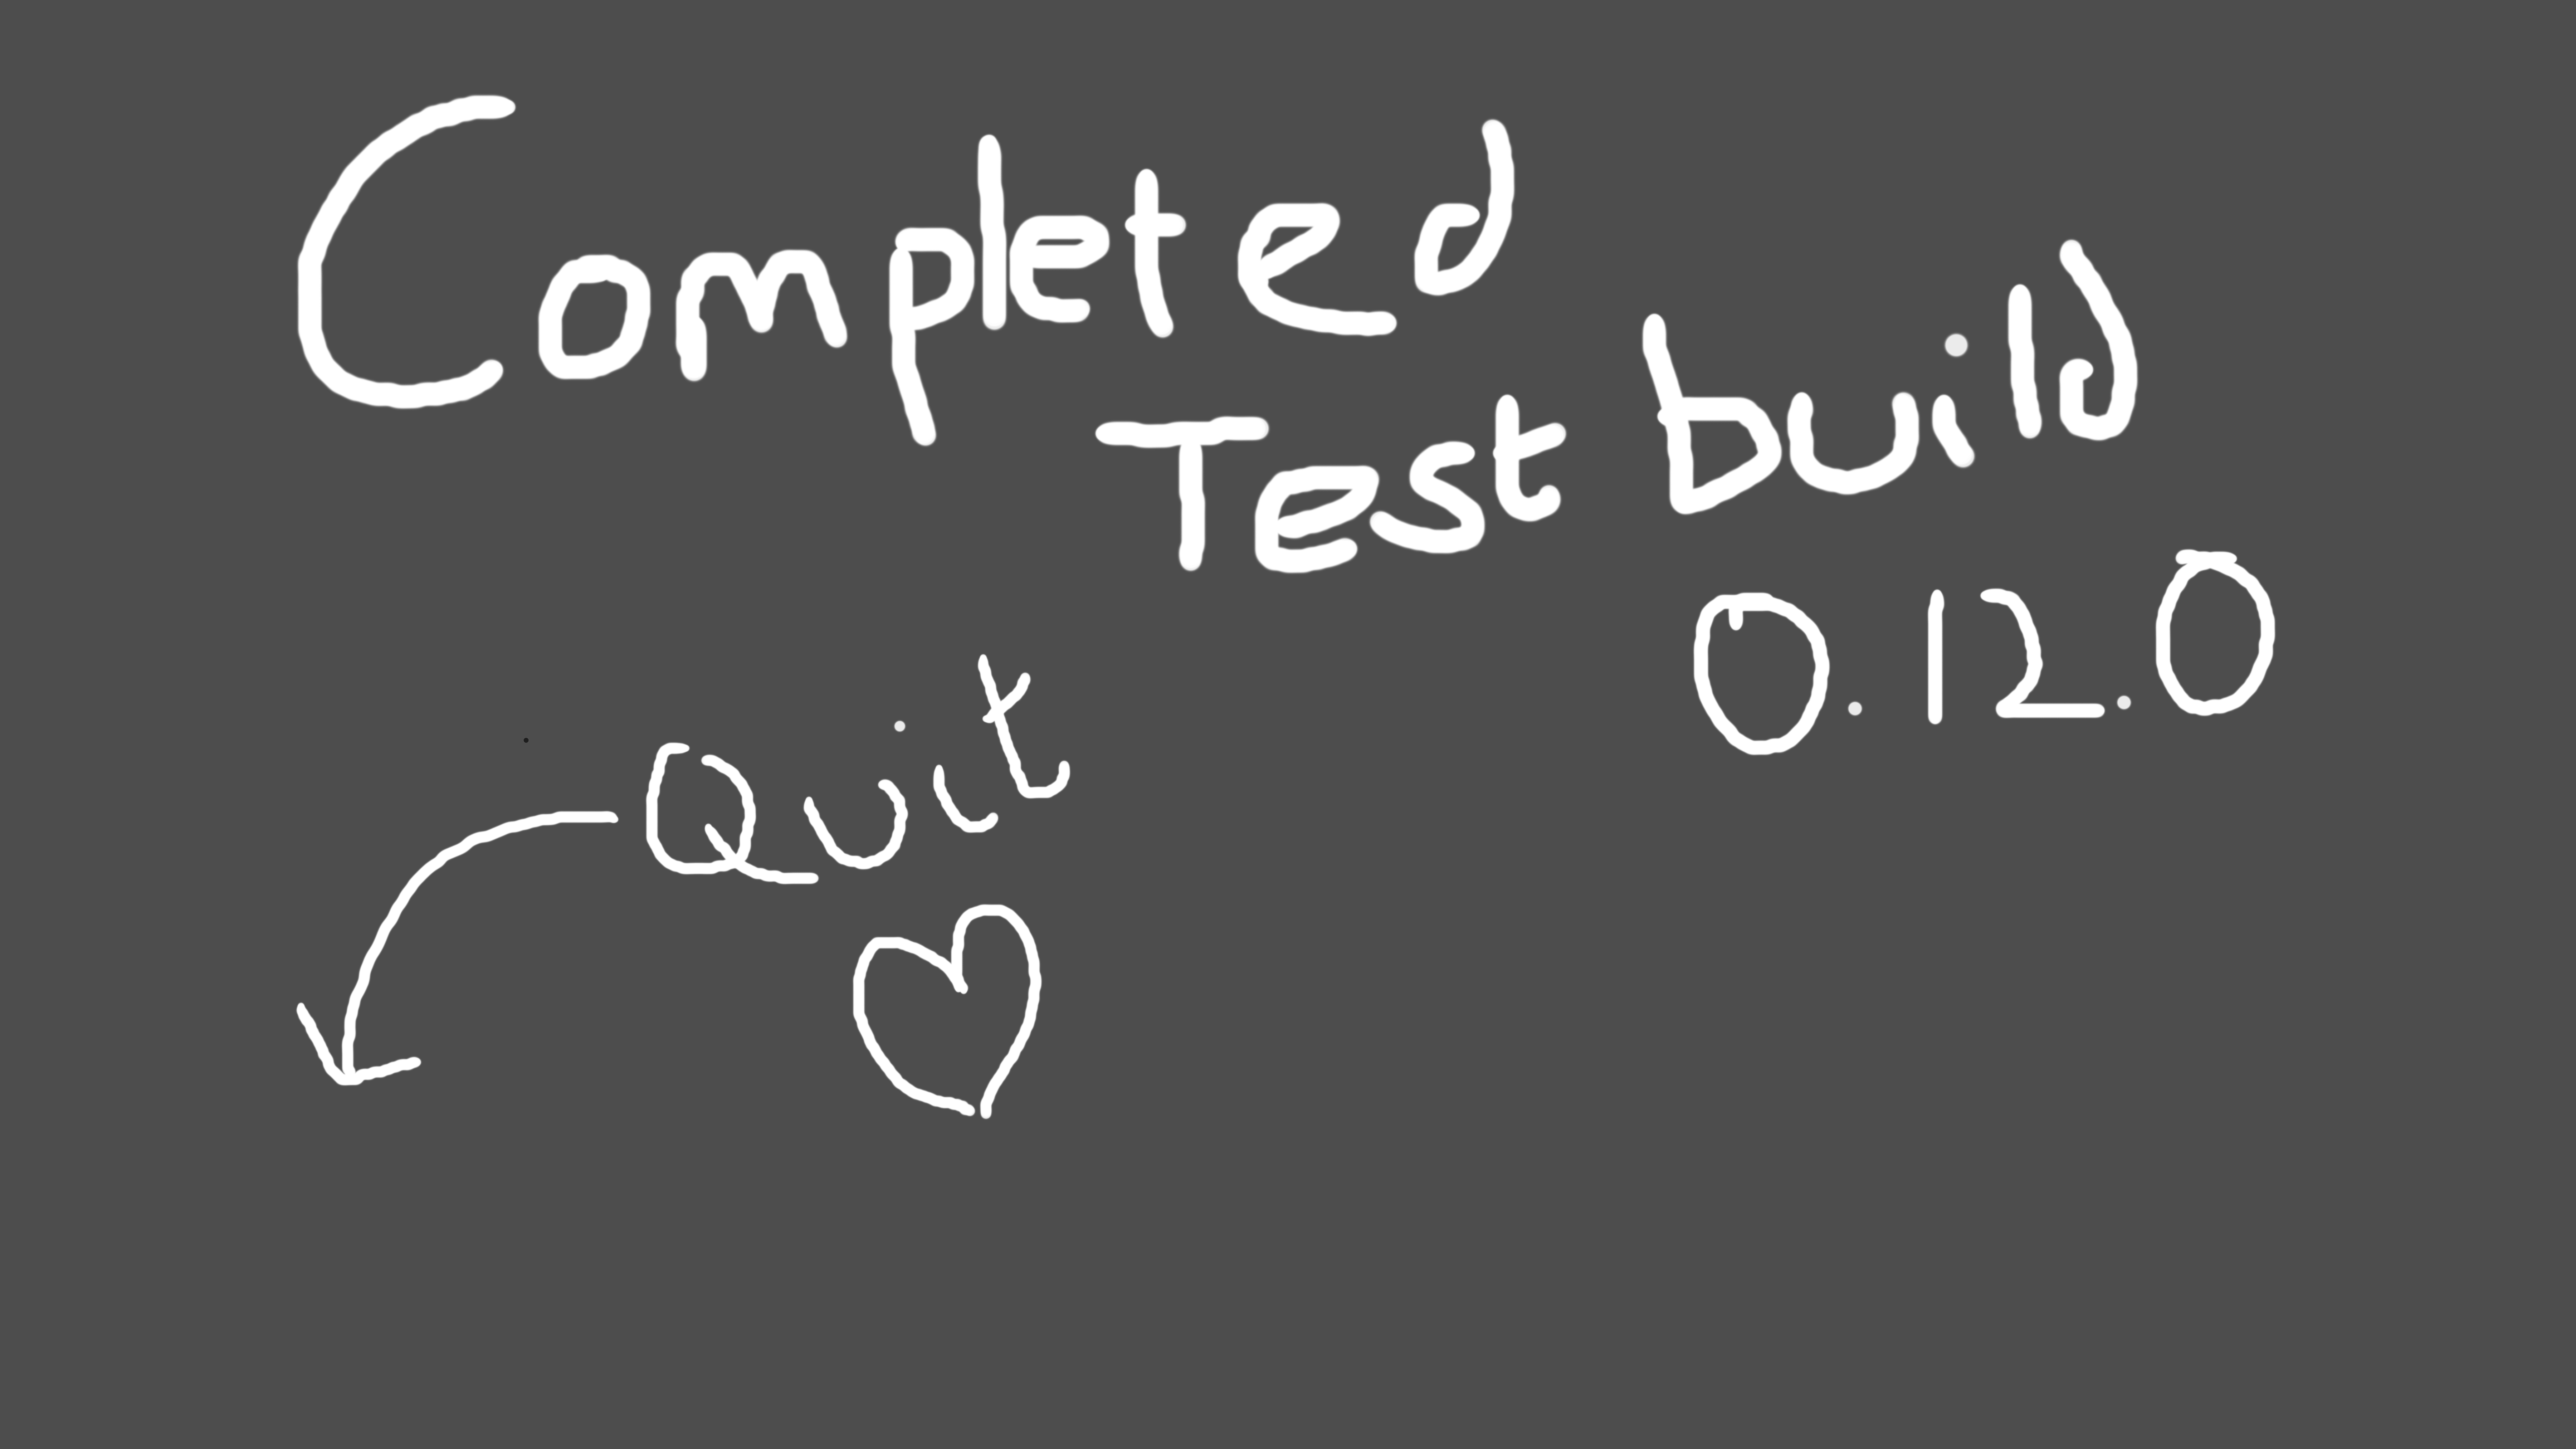 Completed
Test build
0.12.0
Quit